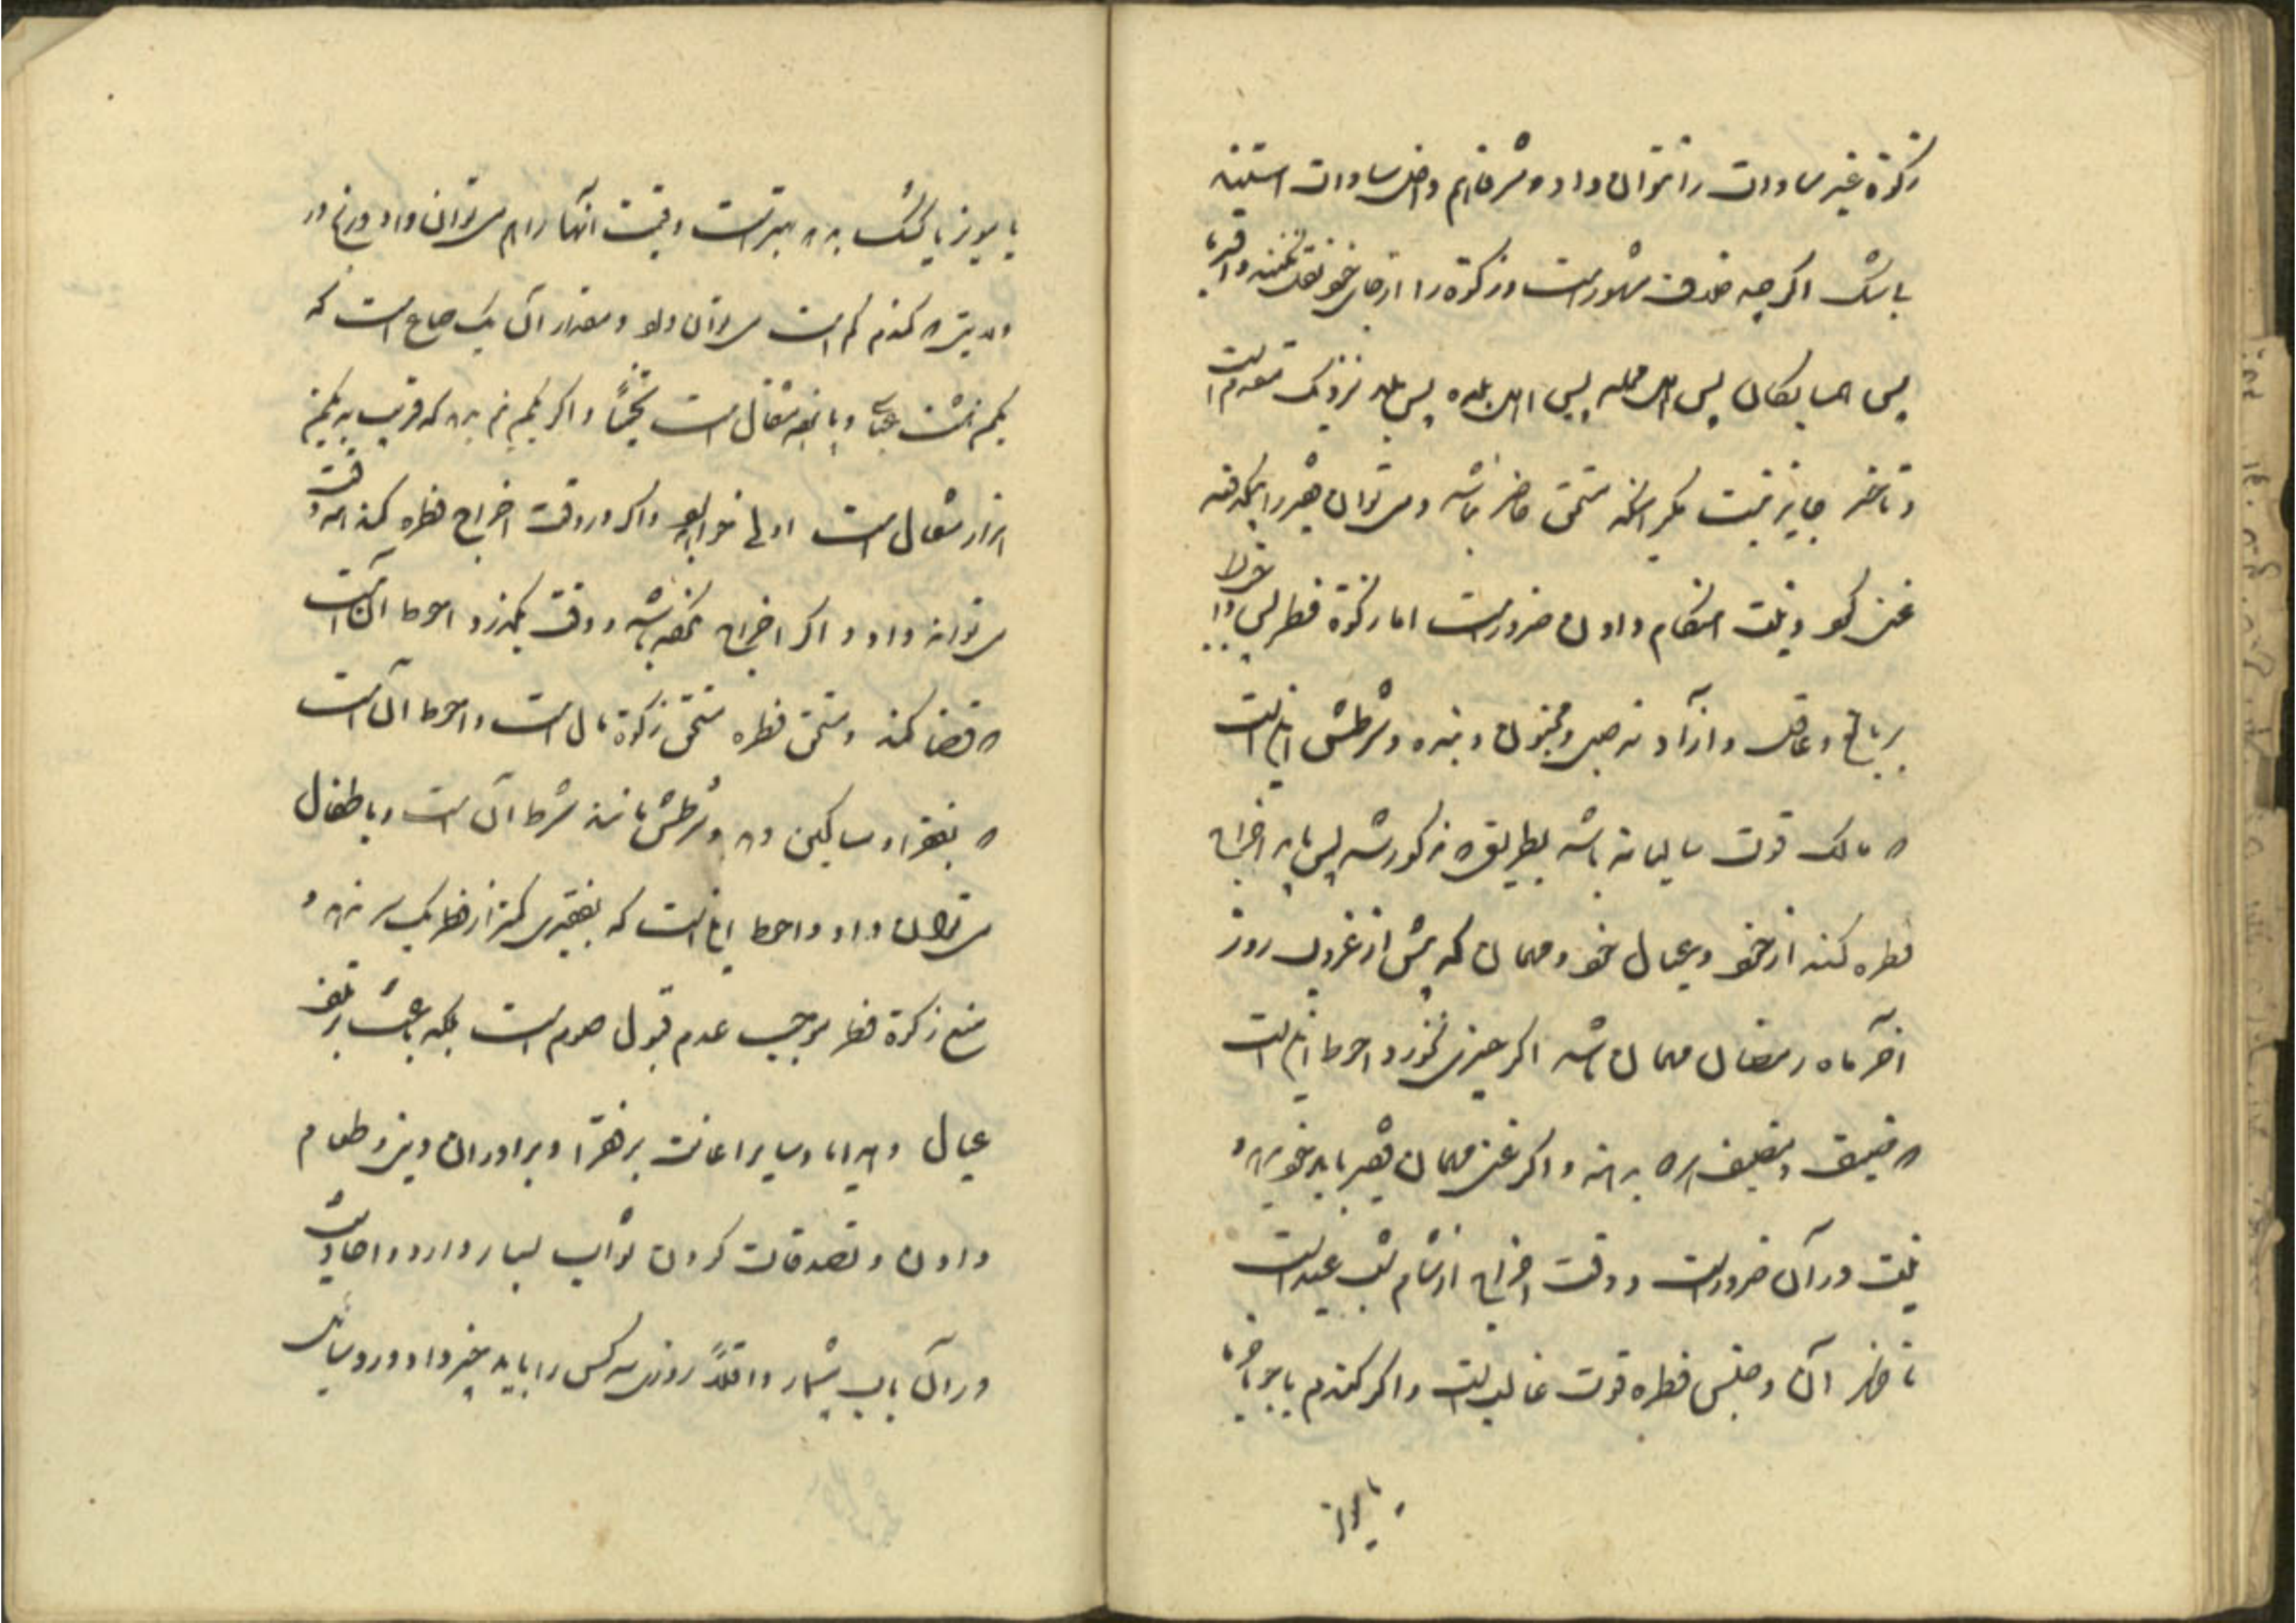 زکوة غیر سادات را نتوان داد و شرفا هم داخل سادات استینه
باشک اگر چه خلاف مشهور است و زکوة را از جای خود نقل نکنند و اقربا
پس همسایکان پس اهل محله پس اهل بلده پس بلد نزدیک مقدم است
و تاخیر جایز نیست مکر آنکه مستحق حاضر نباشد و می توان فقیر را بیکدفعه
غنی کرد و نیت هنکام دادن ضرور است اما زکوة فطر پس واجب
بر بالغ و عاقل و آزاد نه صبی و مجنون و بنده و شرطش این است
که مالک قوت سالیانه باشد بطریقی که مذکور شد پس باید اخراج
فطره کند از خود و عیال خود و مهمان که پیش از غروب روز
آخر ماه رمضان مهمان باشد اکر چیزی نخورد و احوط این است
که ضیف و مضیف هر دو بدهند و اکر غنی مهمان فقیر باشد خود بدهد و
نیت در آن ضرور است و وقت اخراج از شام شب عید است
تا ظهر آن و جنس فطره قوت غالب است و اکر کندم یا جو یا خرما
یا مویز
یا مویز یا کشک بدهد بهتر است و قیمت آنها را هم می توان داد و برنج در
ولایتی که کندم کم است می توان داد و مقدار آن یک صاع است که
یکمن هشت عباسی و پانصد مثقال است تخمیناً و اکر یکمن نیم بدهد که قریب به یکمن
هزار مثقال است اولی خواهد بود و اکر در وقت اخراج فطره کند آنوقت
می تواند داد و اکر اخراج نکرده باشد و وقت بکذرد احوط آن است
که قضا کند و مستحق فطره مستحق زکوة مال است و احوط آن است
که بفقرا و مساکین دهد و شرطش مانند شرط آن است و باطفال
می توان داد و احوط این است که بفقیری کمتر از فطره یک سر ندهد و
منع زکوة فطر موجب عدم قبول صوم است بلکه باعث نقص
عیال و هدایا و سایر اعانت بر فقرا و برادران دینی و طعام
دادن و تصدقات کردن ثواب بسیار دارد و احادیث
در آن باب بیشمار و اقلاً روزی سه کس را باید چیز داد و رد سائل